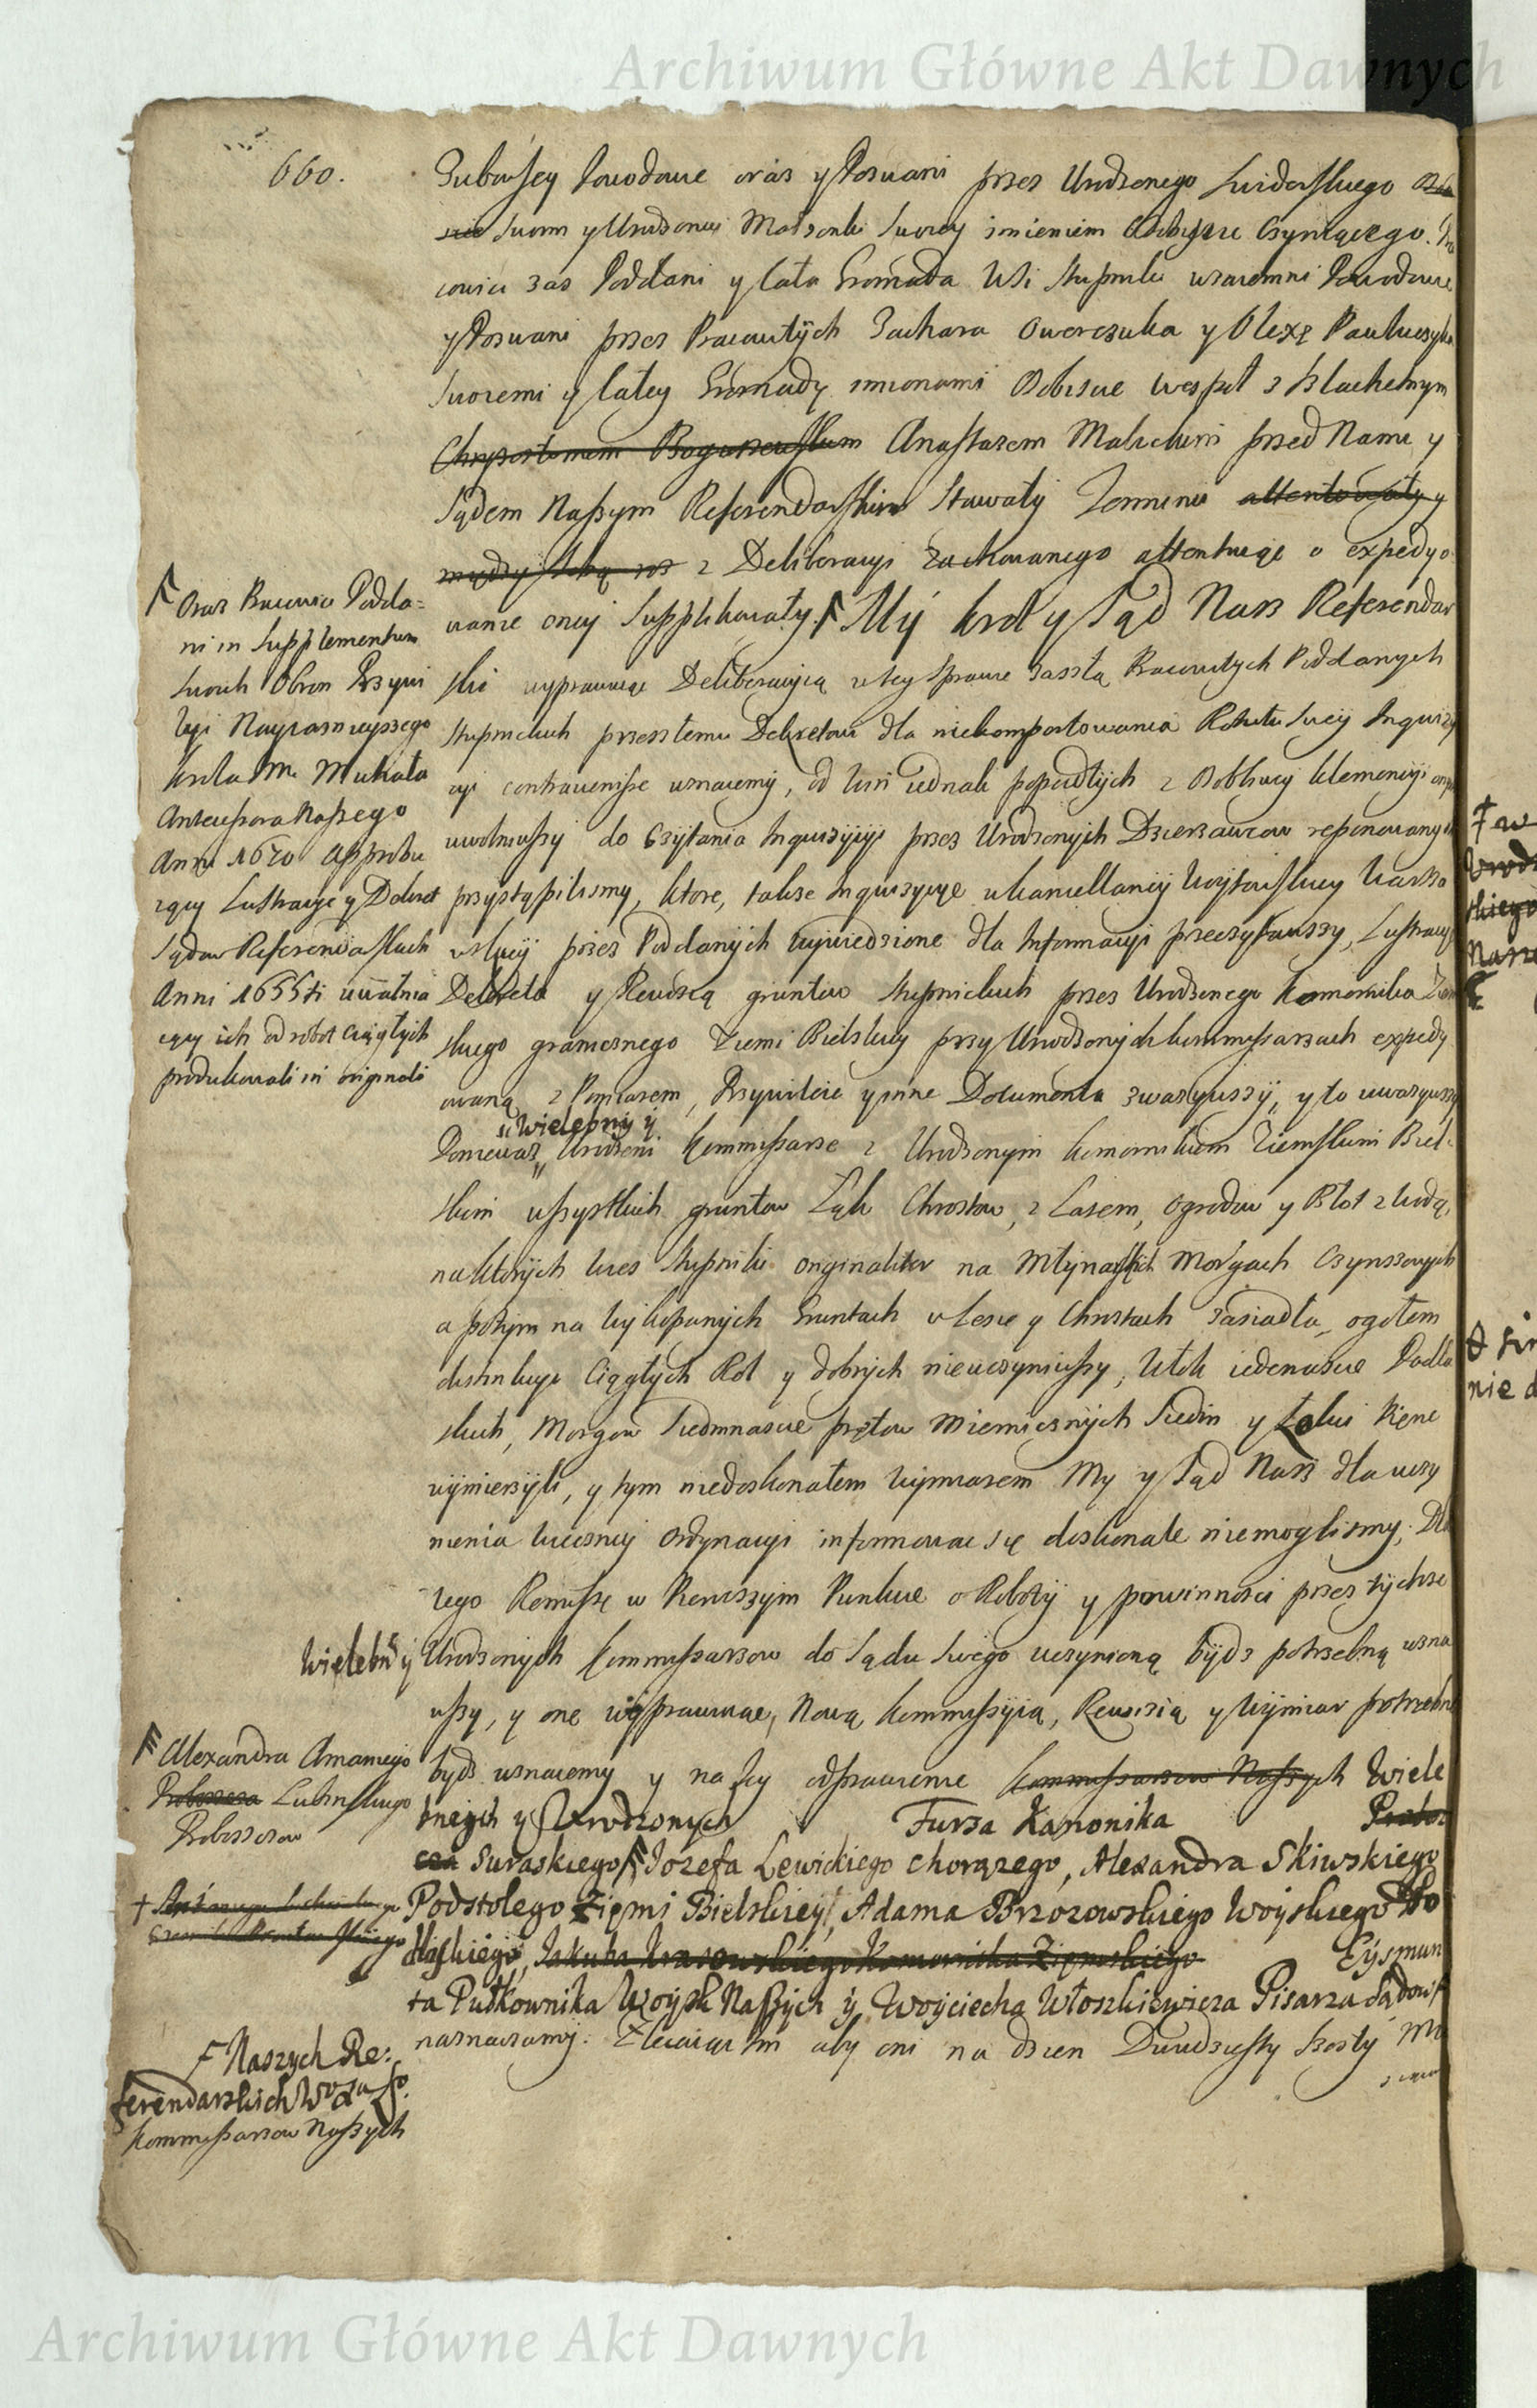 Archiwum Główne Akt Dawnych
660.
Powodowe oraz y Pozwani przez Urodzonego
swym y Urodzoney Małzonki swoiey imieniem Oczywisie Czyniącego.
zas Poddani y cała Gromada Wsi Stupniki wzaiemni Powodowie
y Pozwani przez Pracowitych Zachara Owerczuka y Olexę
swoiemi y całey Gromady imionami Oczewiscie wespoł z Szlachetnym
Anastazem przed Nami y
Sądem Naszym Referendarskim Stawały Terminu attentowały y
między sobą z Deliberacyi zachowanego attentuiąc o expedyo
wanie oney Supplikowały. My Krol y Sąd Nasz Referendar
ski wyprawuiąc Deliberacyią w tey Sprawie zaszłą Pracowitych Poddanych
Stupnickich przeszłemu Dekretowi dla niekomportowania Rotułu swey Inquizy
cyi contravenisse uznaiemy, od Win iednak popadłych z Osobliwey klemencyi
uwolniwszy do Czytania Inquizycyi przez Urodzonych Dzierzawcow reponowanych
przystąpilismy, ktore, takze Inquizycye w kancellaryi
przez Poddanych wywiedzione dla Informacyi przeczytawszy, Lustracye
Dekreta y Rewizyą gruntow Stupnickich przez Urodzonego Komornika Ziem
skiego granicznego Ziemi Bielskiey przy Urodzonych kommissarzach expedy
owaną z Pomiarem, Przywileie y inne Dokumenta zwazywszy, y to uwazywszy
Wielebny y
Poniewaz Urodzeni kommissarze z Urodzonym komornikiem Ziemskim Biel-
skim wszystkich gruntow Łąk Chrostow, z Lasem, ogrodow y Błot z Wodą,
na ktorych wies Stupniki originaliter na Młynarskich Morgach Czynszowych
a potym na Wykopanych Gruntach w Lesie y Chrostach zasiadła, ogołem
distinkcyi Ciągłych Rol y dobrych nieuczyniwszy, Włok iedenascie Podla
skich, Morgow siedmnascie prętow Miernicznych siedm y Łokci
wymierzyli, y tym niedoskonałem Wymiarem My y Sąd Nasz dla uczy
nienia wieczney Ordynacyi informowac się doskonale niemoglismy; Dla
tego Remissę w Pierwszym Punkcie o Roboty y powinnosci przez tychze
Wielebny y Urodzonych kommissarzow do Sądu swego uczynioną bydz potrzebną uzna
wszy, y onę wyprawuiąc, Nową kommissyią, Rewizią y Wymiar potrzebne
bydz uznaiemy y na tey odprawienie kommissarzow Naszych Wiele
bnych y Urodzonych Fursa Kanonika
Suraskiego Jozefa Lewickiego chorązego, Alexandra Skiwskiego
Podstolego Ziemi Bielskiey, Adama Brzozowskiego Woyskiego Po
dlaskiego, Jakuba Krasowskiego Komornika Ziemskiego Eysmun
ta Pułkownika Woysk Naszych y Woyciecha Włoszkiewicza Pisarza Sądow
naznaczamy. Zlecaiąc im aby oni na dzien Dwudziesty szosty
Oraz Pracowici Podda=
ni in Supplementum
swoich Obron Przywi
lej Nayiasnieyszego
krola Jmci Michała
Antecessora Naszego
Anni 1670 approbu
iący Lustracye y Dekret
Sądow Referendarskich
Anni 1655ti uwalnia
iący ich od robot ciągłych
produkowali in originali
Alexandra
Proboszcza
Proboszczow
F Naszych Re:
ferendarskich
kommissarzow Naszych
nie d
Archiwum Główne Akt Dawnych